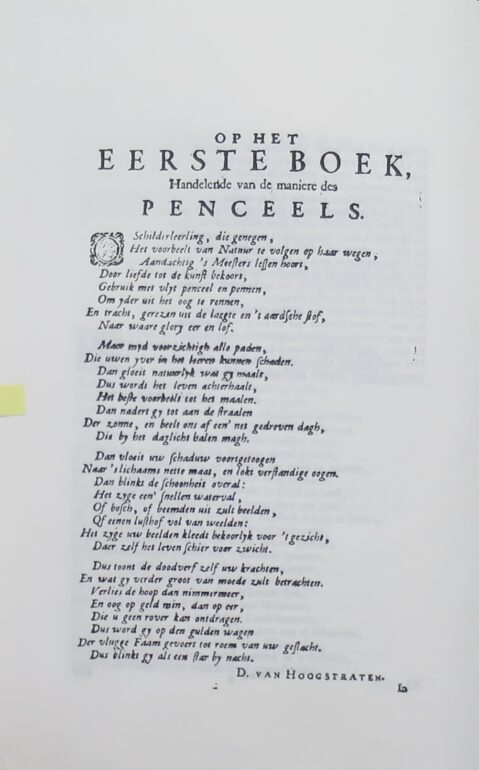 OP HET
EERSTE BOEK,
Handelende van de maniere des
PENCEELS.
O Schilderleerling, die genegen,
Het voorbeelt van Natuur te volgen op haar wegen,
Aandachtig 's Meesters lessen hoort,
Door liefde tot de kunst bekoort,
Gebruik met vlyt penceel en pennen,
Om yder uit het oog te rennen,
En tracht, gerezen uit de laegte en 't aardsche stof,
Naar waare glory eer en lof.
Maar myd voorzichtigh alle paden,
Die uwen yver in het leeren kunnen schaden.
Dan gloeit natuurlyk wat gy maalt,
Dus wordt het leven achterhaalt,
Het beste voorbeelt tot het maalen.
Dan nadert gy tot aan de straalen
Der zonne, en beelt ons af een' net gedreven dagh,
Die by het daglicht halen magh.
Dan vloeit uw schaduw voortgetoogen
Naar 's lichaams nette maat, en lokt verstandige oogen.
Dan blinkt de schoonheit overal:
Het zyge een' snellen waterval,
Of bosch, of beemden uit zult beelden,
Of eenen lusthof vol van weelden:
Het zyge uw beelden kleedt bekoorlyk voor 't gezicht,
Daer zelf het leven schier voor zwicht.
Dus toont de doodverf zelf uw krachten,
En wat gy verder groot van moede zult betrachten.
Verlies de hoop dan nimmermeer,
En oog op geld min, dan op eer,
Die u geen rover kan ontdragen.
Dus word gy op den gulden wagen
Der vlugge Faam gevoert tot roem van uw geslacht.
Dus blinkt gy als een star by nacht.
D. VAN HOOGSTRATEN.